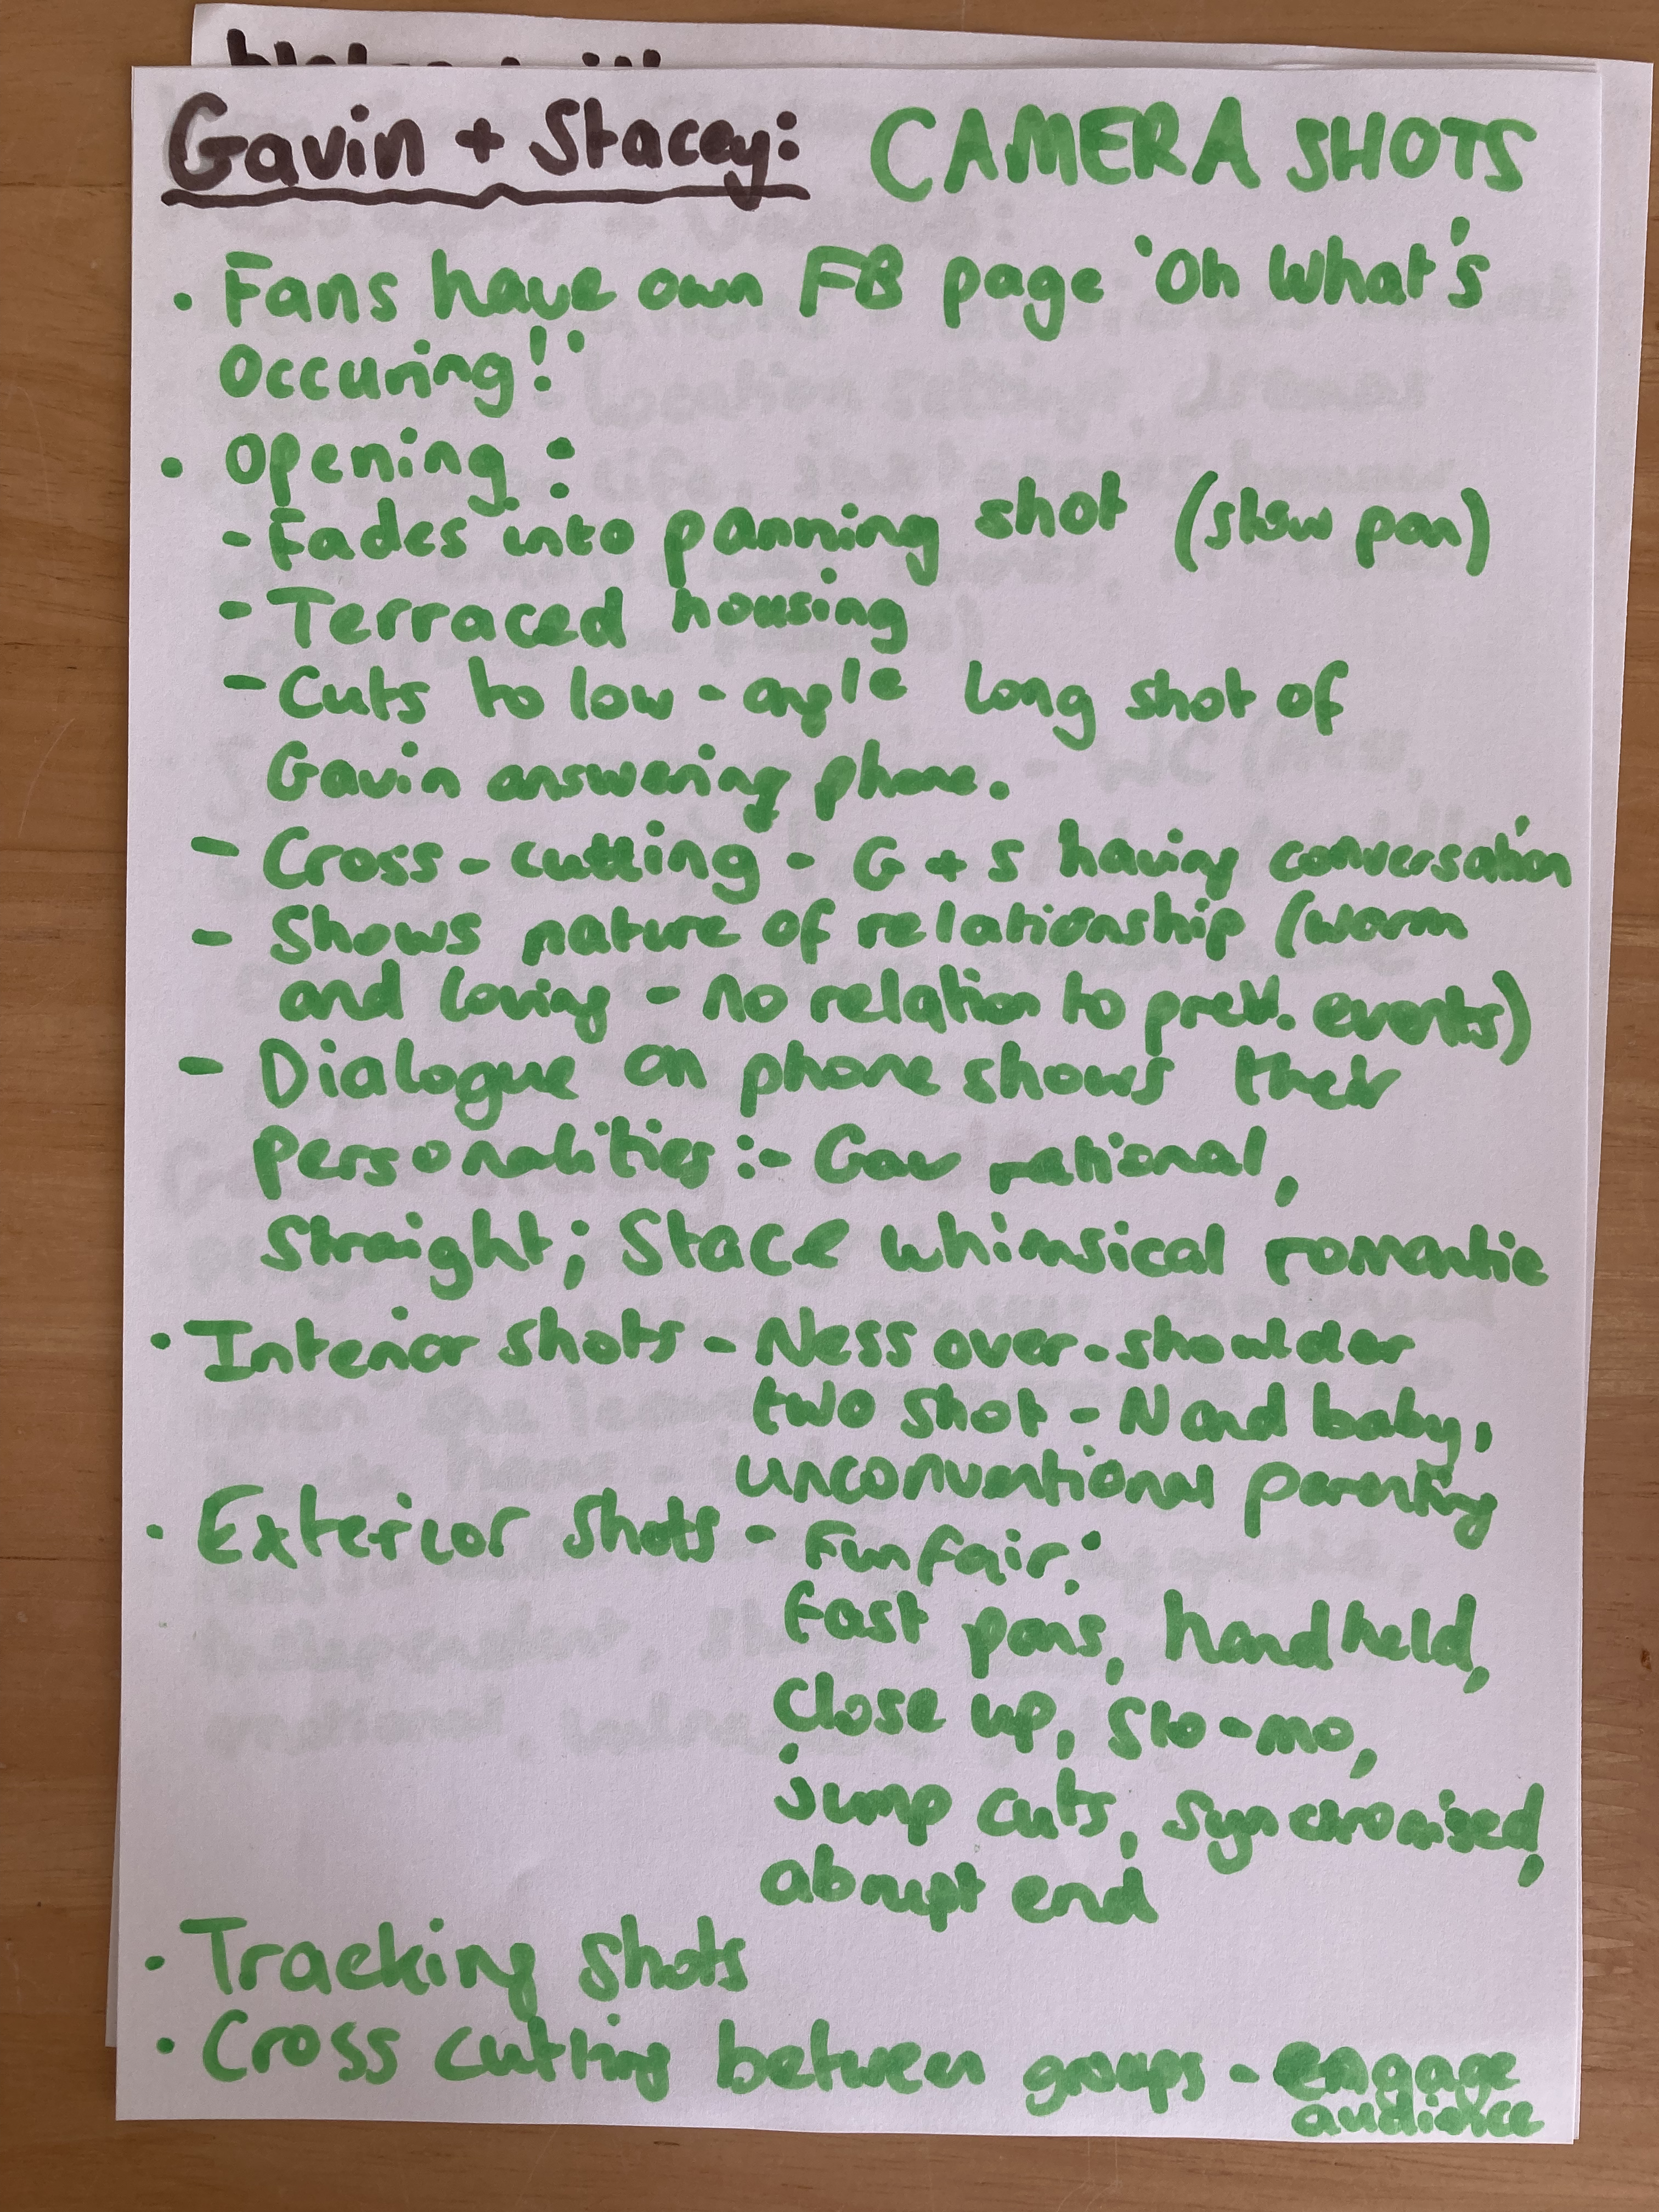 Gavin + Stacey: CAMERA SHOTS
• Fans have own FB page 'Oh What's
Occuring!'
• Opening:
- Fades into panning shot (slow pan)
- Terraced housing
- Cuts to low-angle long shot of
Gavin answering phone.
- Cross-cutting - G + S having conversation
- Shows nature of relationship (warm
and loving - no relation to prev. events)
- Dialogue on phone shows their
personalities:- Gav rational,
Straight; Stace whimsical romantic
• Interior shots - Ness over-shoulder
two shot - N and baby,
unconventional parenting
• Exterior shots - Funfair:
fast pans, handheld,
close up, slo-mo,
jump cuts, synchronised,
abrupt end
• Tracking shots
• Cross cutting between groups - engage
audience